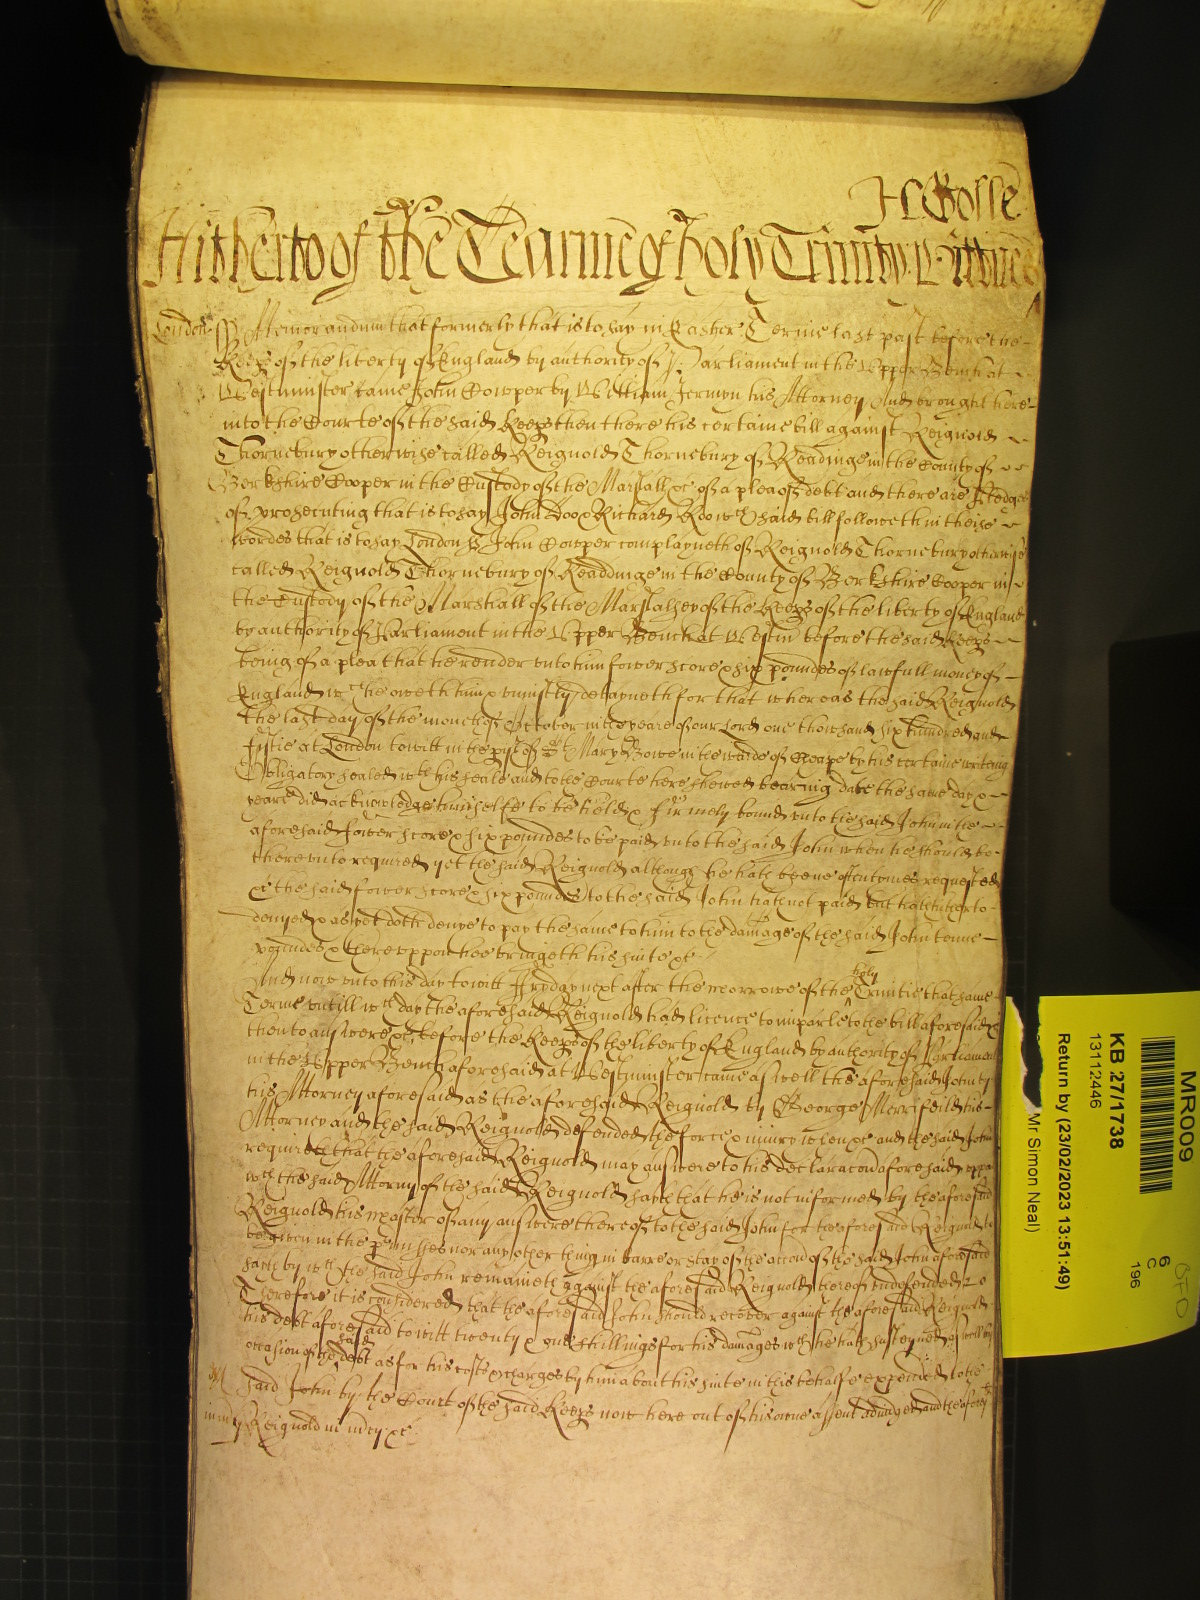 Hitherto of the Tearme of holy Trinity Wittnes
London ss Memorandum that formerly that is to say in Easter Terme last past before the
Keeps of the liberty of England by authority of Parliament in the Upper Bench at
Westminster came John Cowper by William Jermyn his Attorney And brought here
into the Courte of the said Keeps then there his certaine bill against Reignold
Thornebury otherwise called Reignold Thornebury of Readinge in the County of
Berkshire Cooper in the Custody of the Marshall &c of a plea of debt and there are Pledges
of prosecuting that is to say John Doo & Richard Roo wch said bill followeth in theise
wordes that is to say London ss John Cowper complayneth of Reignold Thornebury otherwise
called Reignold Thornebury of Readdinge in the County of Berkshire Cooper in
the Custody of the Marshall of the Marshalsey of the Keeps of the liberty of England
by authority of Parliament in the Upper Bench at Westm before the said Keeps
being of a plea that he render unto him fower score & six poundes of lawfull money of
England wch he oweth him & uniustly detayneth for that whereas the said Reignold
the last day of the moneth of October in the yeare of our Lord one thowsand six hundred and
fiftie at London to witt in the pish of St Mary Bowe in the warde of Cheape by his certaine writing
Obligatory sealed wth his seale and to the Courte here shewed bearing date the same day &
yeare did acknowledge himselfe to be held & firmely bound unto the said John in the
aforesaid fower score & six poundes to be paid unto the said John when he should be
thereunto required yet the said Reignold although he hath beene oftentymes requested
&c the said fower score & six poundes to the said John hath not paid but hath hitherto
denyed & as yet doth denye to pay the same to him to the damage of the said John tenne
poundes & thereuppon hee bringeth his suite &c
And now unto this day to witt Fryday next after the morrowe of the holy Trinitie that same
Terme untill wch day the aforesaid Reignold had licence to imparle to the bill aforesaid &
then to answere &c before the Keeps of the liberty of England by authority of Parliament
in the Upper Bench aforesaid at Westminster came aswell the aforesaid John by
his Attorney aforesaid as the aforesaid Reignold by George Merrifeild his
Attorney and the said Reignold defended the force & iniury when &c and the said John
required that the aforesaid Reignold may answere to his declaracon aforesaid uppon
wch the said Attorny of the said Reignold sayth that he is not informed by the aforesaid
Reignold his master of any answere thereof to the said John for the aforesaid Reignold to
be given in the pmisses nor any other thing in barre or stay of the accon of the said John aforesaid
sayth by wch the said John remaineth against the aforesaid Reignold thereof undefended &c
Therefore it is considered that the aforesaid John should recover against the aforesaid Reignold
his debt aforesaid to witt twenty & one shillings for his damages wch he hath susteyned aswell by
occasion of the said debt as for his costs & charges by him about his suite in this behalfe expended to the
said John by the Court of the said Keeps now here out of his owne assent adiudged and the aforesaid
Reignold in mcy &c
MR009
KB 27/1738
13112446
Return by (23/02/2023 13:51:49)
Mr Simon Neal)
6
C
196